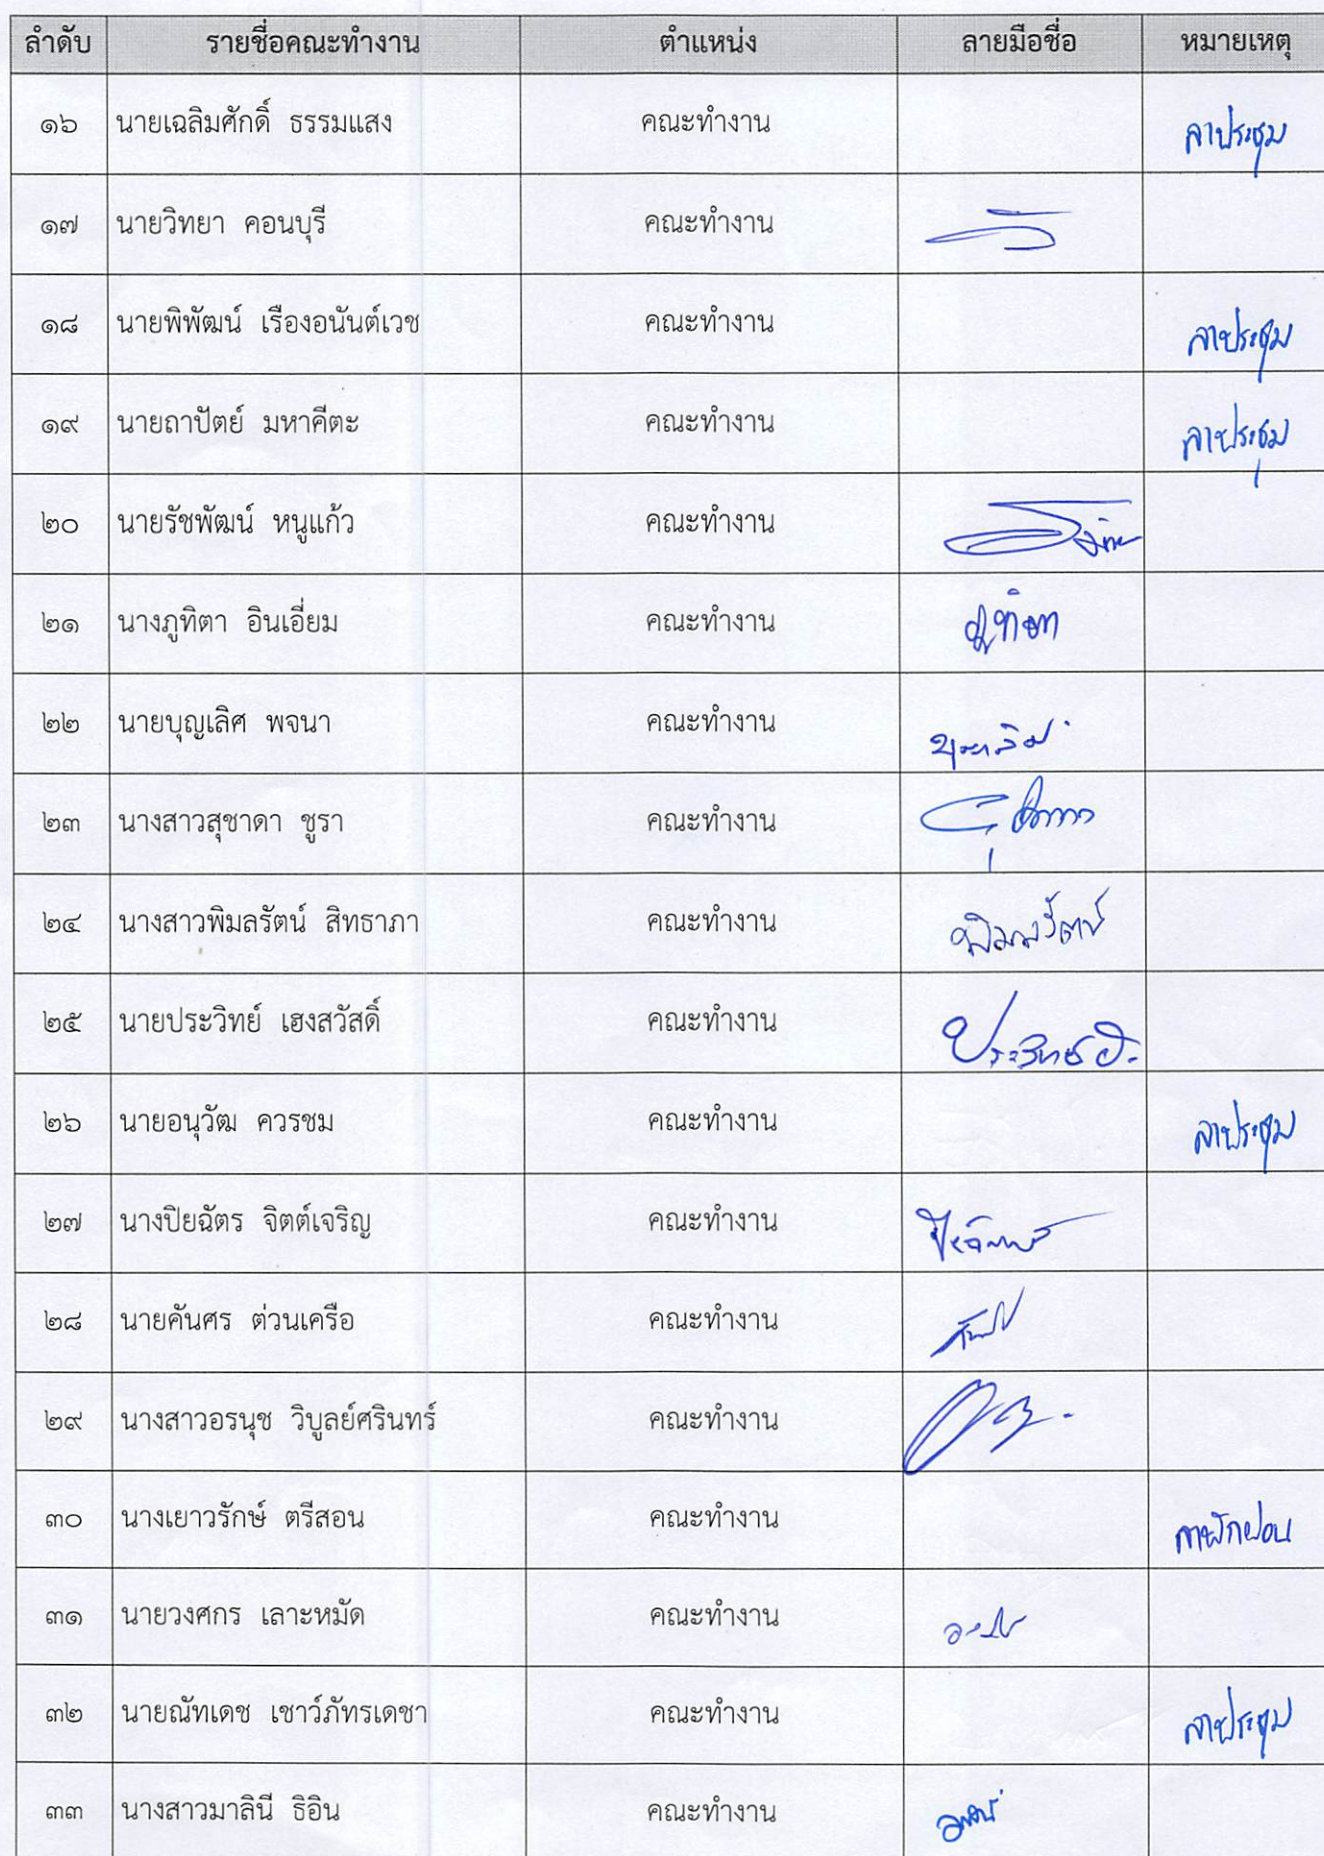 ลำดับ รายชื่อคณะทำงาน ตำแหน่ง ลายมือชื่อ หมายเหตุ
๑๖ นายเฉลิมศักดิ์ ธรรมแสง คณะทำงาน ลาประชุม
๑๗ นายวิทยา คอนบุรี คณะทำงาน
๑๘ นายพิพัฒน์ เรืองอนันต์เวช คณะทำงาน ลาประชุม
๑๙ นายถาปัตย์ มหาคีตะ คณะทำงาน ลาประชุม
๒๐ นายรัชพัฒน์ หนูแก้ว คณะทำงาน
๒๑ นางภูทิตา อินเอี่ยม คณะทำงาน ภูทิตา
๒๒ นายบุญเลิศ พจนา คณะทำงาน
๒๓ นางสาวสุชาดา ชูรา คณะทำงาน
๒๔ นางสาวพิมลรัตน์ สิทธาภา คณะทำงาน พิมลรัตน์
๒๕ นายประวิทย์ เฮงสวัสดิ์ คณะทำงาน
๒๖ นายอนุวัฒ ควรชม คณะทำงาน ลาประชุม
๒๗ นางปิยฉัตร จิตต์เจริญ คณะทำงาน
๒๘ นายคันศร ต่วนเครือ คณะทำงาน
๒๙ นางสาวอรนุช วิบูลย์ศรินทร์ คณะทำงาน
๓๐ นางเยาวรักษ์ ตรีสอน คณะทำงาน ลาพักผ่อน
๓๑ นายวงศกร เลาะหมัด คณะทำงาน
๓๒ นายณัทเดช เชาว์ภัทรเดชา คณะทำงาน ลาประชุม
๓๓ นางสาวมาลินี ธิอิน คณะทำงาน